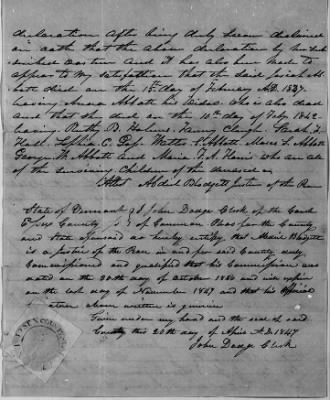 declaration after being duly sworn declared
on oath that the above declaration by him sub
scribed was true and it has also been made to
appear to my satisfaction that the said Josiah
Abbott died on the 15th day of February A.D. 1837.
having Anna Abbott his widow who is also
dead and that she died on the 10th day of July 1842
having Ruthy B. Fanny Clough. Sarah
Hall. Sophia C. Abbott. Moses L. Abbott
George W. Abbott and Maria Harris who are all
of the surviving children of the deceased
Attest Abdiel Blodgett Justice of the Peace
State of Vermont I John Dodge Clerk of the County
Essex County of Common Pleas for the County
and State aforesaid do hereby certify that Abdiel Blodgett
is a Justice of the Peace in and for said County duly
Commissioned and qualified that his Commission was
dated on the 30th day of October 1846 and will expire
on the day of November 1847 and that his Official
above written is genuine
Given under my hand and the seal of said
County this 20th day of April A.D. 1847
John Dodge Clerk